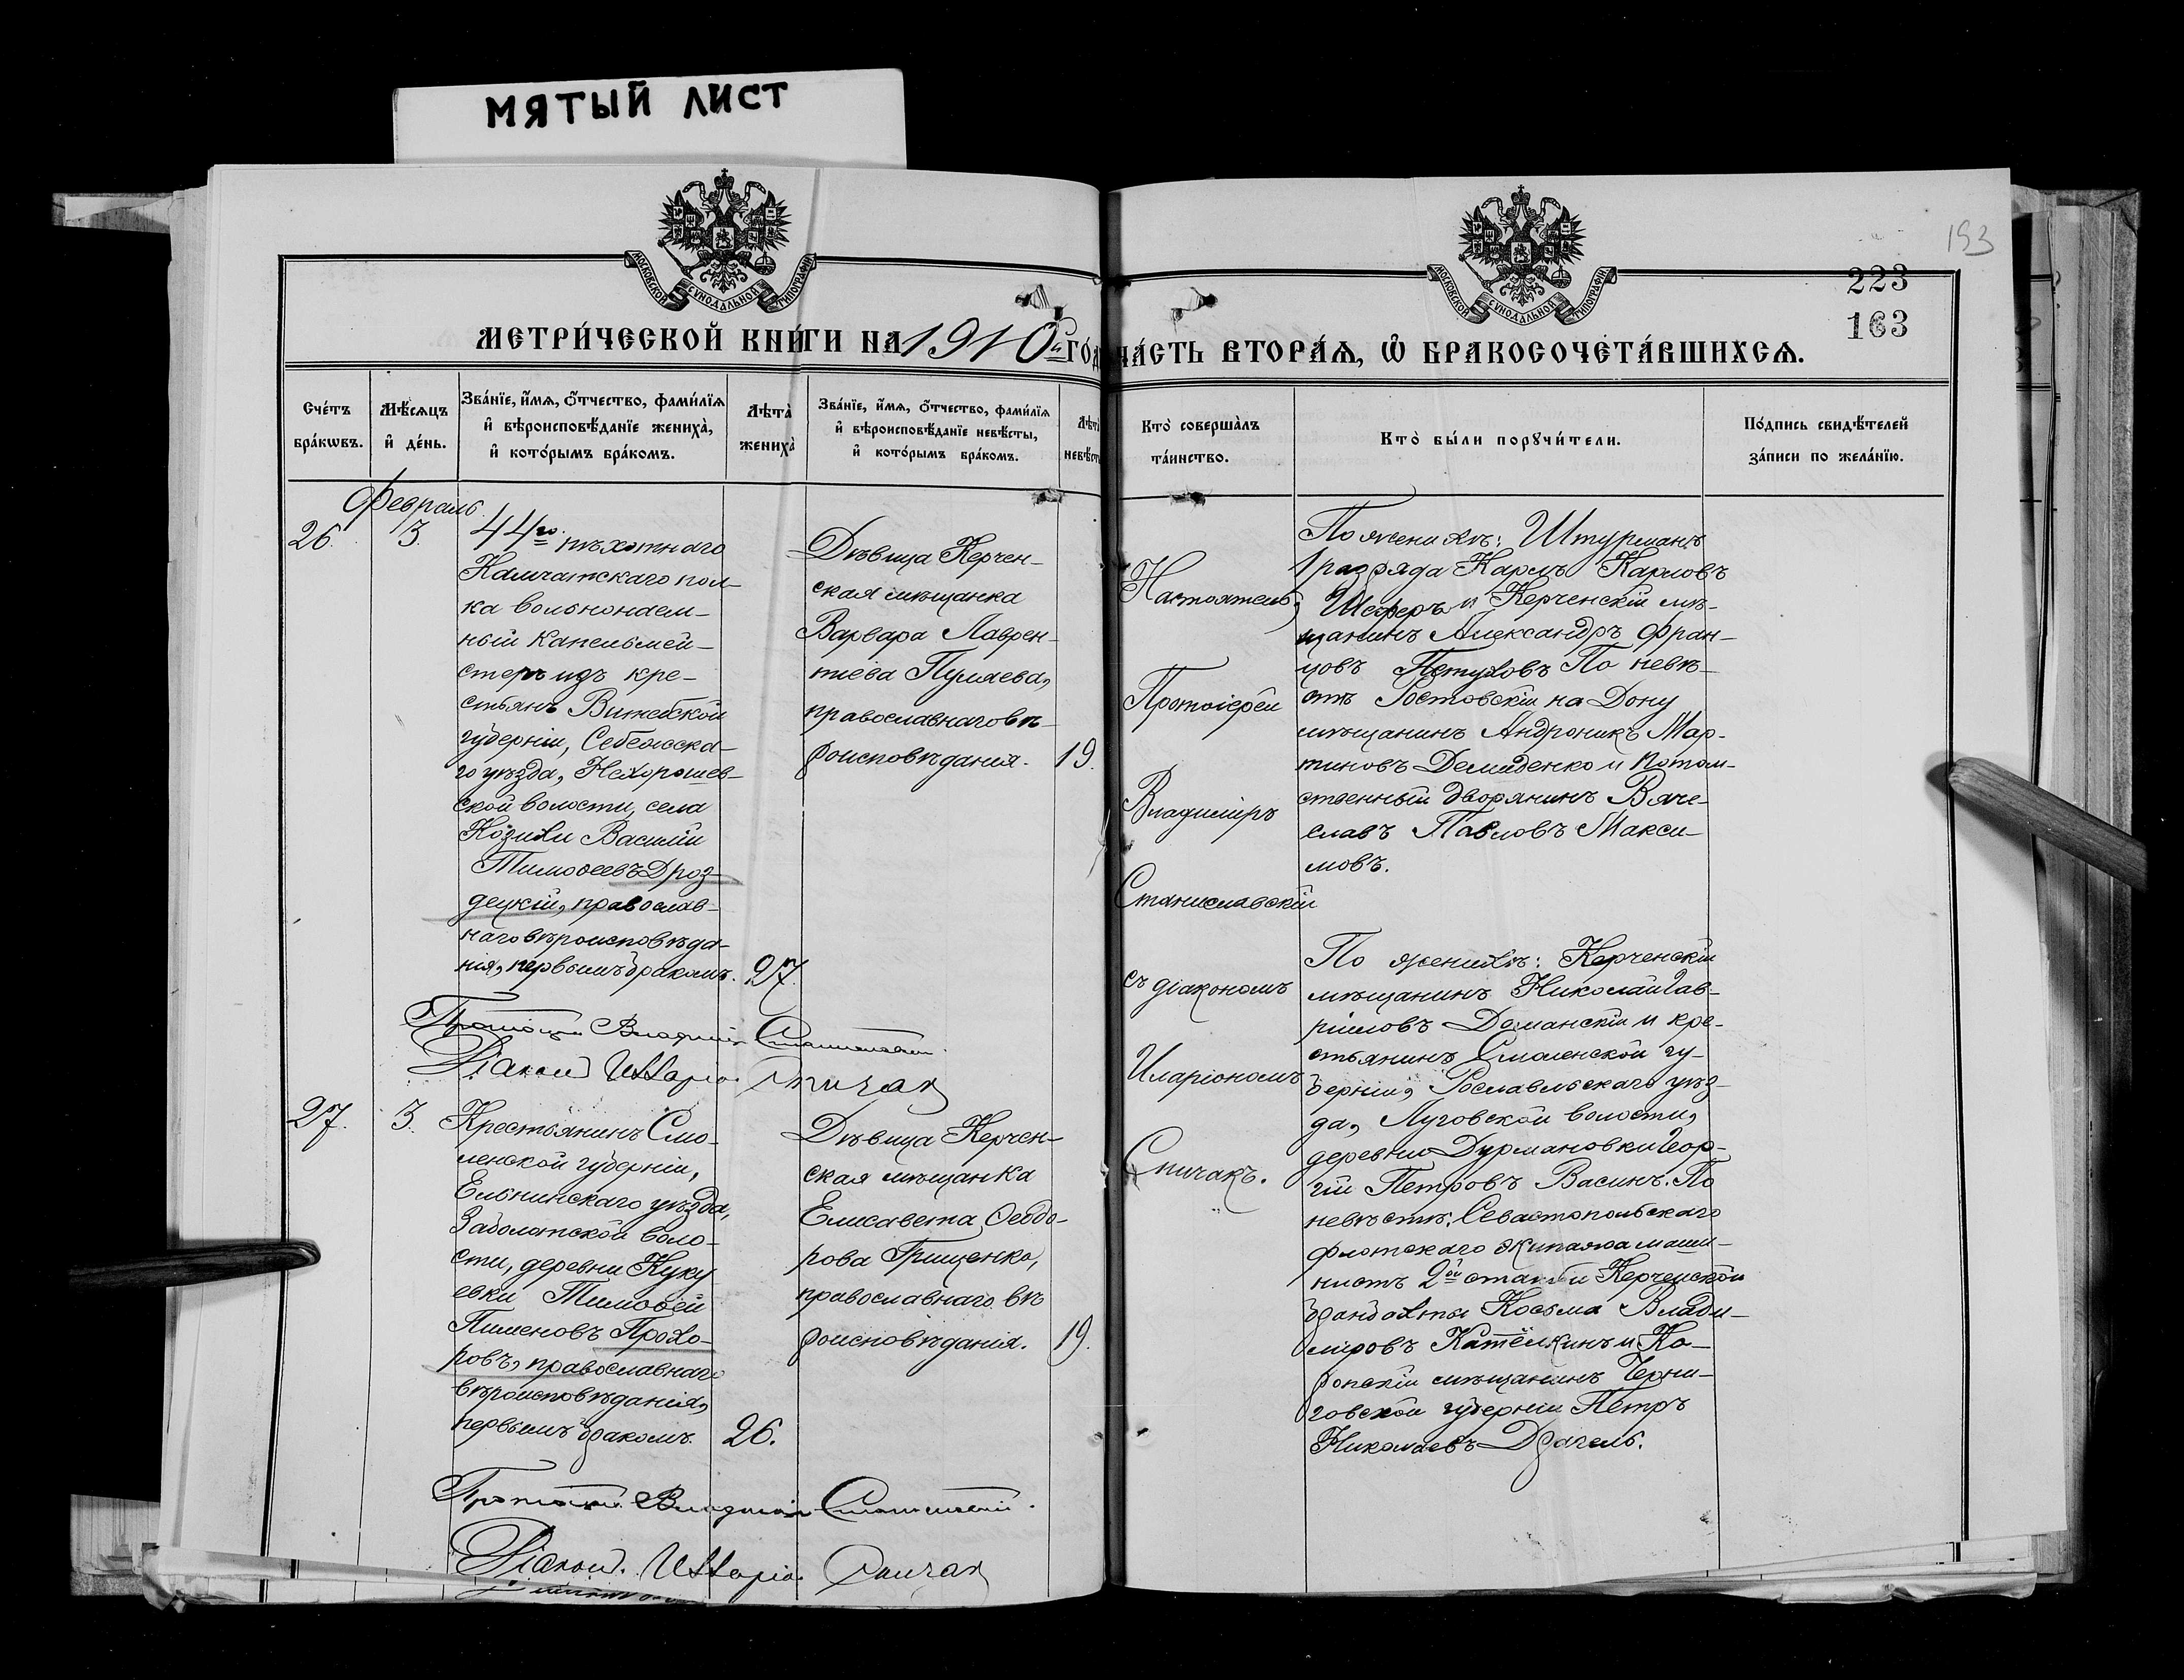 МЯТЫЙ ЛИСТ
193
223
163
МОСКОВСКОЙ СѴНОДАЛЬНОЙ ТИПОГРАФІИ
МОСКОВСКОЙ СѴНОДАЛЬНОЙ ТИПОГРАФІИ
МЕТРИ́ЧЕСКОЙ КНИ́ГИ НА 1910й ГО́Д
ЧА́СТЬ ВТОРА́Ѧ, Ѽ БРАКОСОЧЕТА́ВШИХСѦ.
Сче́тъ бра́кѡвъ.
Мѣ́сѧцъ и҆ де́нь.
Зва́нїе, и҆́мѧ, ѻ҆́тчество, фами́лїѧ
и҆ вѣроисповѣ́данїе жениха̀,
и҆ кото́рымъ бра́комъ.
Лѣта̀ жениха̀
Зва́нїе, и҆́мѧ, ѻ҆́тчество, фами́лїѧ
и҆ вѣроисповѣ́данїе невѣ́сты,
и҆ кото́рымъ бра́комъ.
Лѣта̀ невѣ́ст
Кто̀ соверша̀лъ та́инство.
Кто̀ бы́ли порꙋчи́тели.
По́дпись свидѣ́телей
за́писи по жела́нїю.
Февраль
26.
3.
44го пѣхотнаго
Камчатскаго пол-
ка вольнонаем-
ный капельмей-
стеръ изъ кре-
стьянъ Витебской
губерніи, Себежска-
го уѣзда, Нехорошев-
ской волости, села
Козихи Василій
Тимоѳеевъ Дроз-
децкій, православ-
наго вѣроисповѣда-
нія, первымъ бракомъ.
27.
Дѣвица Керчен-
ская мѣщанка
Варвара Лаврен-
тіева Пуляева,
православнаго вѣ-
роисповѣданія.
19.
Настоятель,
Протоіерей
Владиміръ
Станиславскій
съ діакономъ
Иларіономъ
Спичакъ.
По женихѣ: Штурманъ
1 разряда Карлъ Карловъ
Шеферъ и Керченскій мѣ-
щанинъ Александръ Фран-
цовъ Петуховъ По невѣ-
стѣ Ростовскій на Дону
мѣщанинъ Андроникъ Мар-
тиновъ Демиденко и потом-
ственный дворянинъ Вяче-
славъ Павловъ Макси-
мовъ.
Протоіерей Владимір Станиславскій.
Діаконъ Илларіо. Спичак
27.
3.
Крестьянинъ Смо-
ленской губерніи,
Ельнинскаго уѣзда,
Заболатской воло-
сти, деревни Куку
евки Тимоѳей
Пименовъ Прохо-
ровъ, православнаго
вѣроисповѣданія,
первымъ бракомъ.
26.
Дѣвица Керчен-
ская мѣщанка
Елисавета Ѳеодо-
рова Грищенко,
православнаго вѣ
роисповѣданія.
19.
По женихѣ: Керченскій
мѣщанинъ Николай Гав-
ріиловъ Доманскій и кре-
стьянинъ Смоленской гу-
берніи, Рославльскаго уѣз-
да, Луговской волости,
деревни Дурмановки Геор-
гій Петровъ Васинъ. По
невѣстѣ: Севастопольскаго
флотскаго экипажа маши-
нистъ 2й статьи Керченской
брандвахты Косьма Влади-
міровъ Катёлкинъ и Ко-
ропскій мѣщанинъ Черни-
говской губерніи Петръ
Николаевъ Драгель.
Протоіерей Владимір Станиславскій.
Діаконъ. Илларіо. Спичак